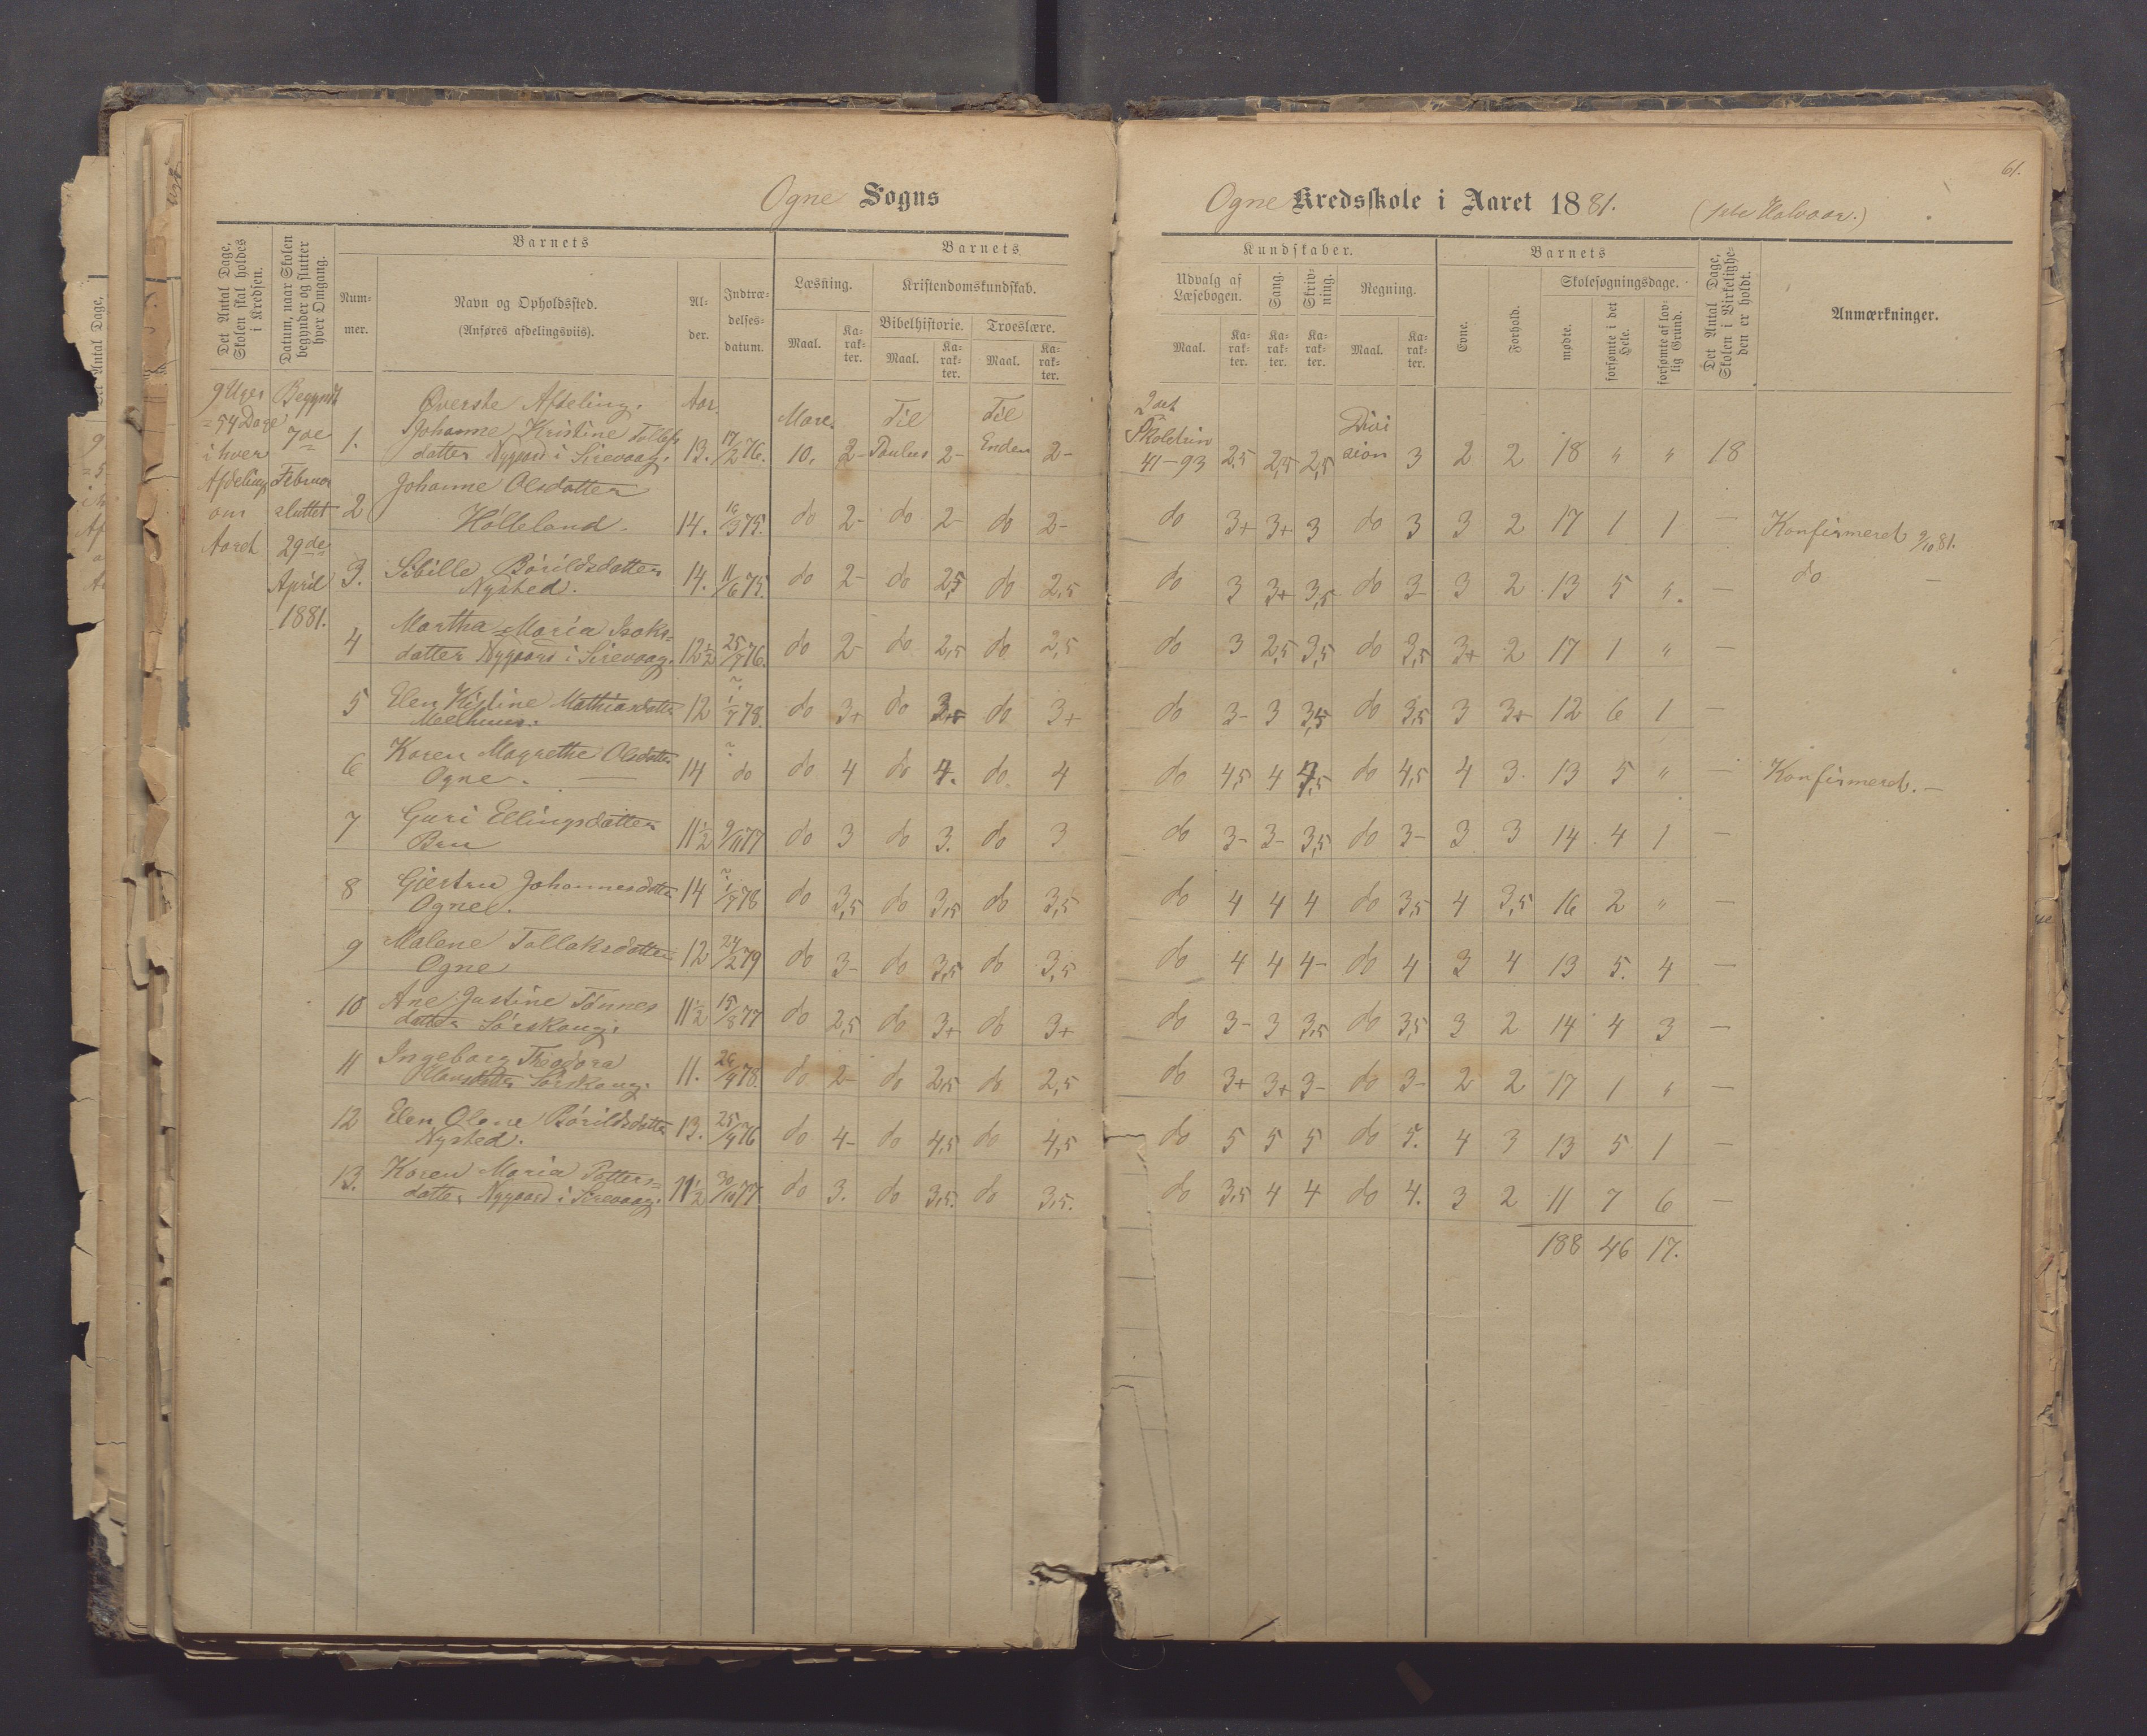 61.
Ogne Sogns
Ogne Kredsskole i Aaret 1881. (1ste Halvaar.)
Det Antal Dage, Skolen skal holdes i Kredsen.
Datum, naar Skolen begynder og slutter hver Omgang.
Barnets
Num-mer.
Navn og Opholdssted.
(Anføres afdelingsviis).
Al-der.
Indtræ-delses-datum.
Barnets
Læsning.
Maal.
Ka-rak-ter.
Kristendomskundskab.
Bibelhistorie.
Maal.
Ka-rak-ter.
Troeslære.
Maal.
Ka-rak-ter.
Kundskaber.
Udvalg af Læsebogen.
Maal.
Ka-rak-ter.
Sang.
Ka-rak-ter.
Skriv-ning.
Ka-rak-ter.
Regning.
Maal.
Ka-rak-ter.
Barnets
Evne.
Forhold.
Skolesøgningsdage.
mødte.
forsømte i det Hele.
forsømte af lov-lig Grund.
Det Antal Dage, Skolen i Virkelighe-den er holdt.
Anmærkninger.
9 Uger
= 54 Dage
i hver
Afdeling
om
Aaret
Begyndt
7de
Februar
sluttet
29de
April
1881.
Øverste Afdeling. Aar.
1. Johanne Kristine Tollefs
datter Nygaard i Sirevaag. 13. 17/2 76. Mare. 10. 2- Til Paulus 2- Til Enden 2- 2det Skoletrin 41-93 2,5 2,5 2,5 Division 3 2 2 18 " " 18
2 Johanne Olsdatter
Holleland. 14. 16/3 75. do 2- do 2- do 2- do 3+ 3+ 3 do 3 3 2 17 1 1 — Konfirmeret 9/10 81.
3. Sibille Bårildsdatter
Nysted. 14. 11/6 75. do 2- do 2,5 do 2,5 do 3 3+ 3,5 do 3- 3 2 13 5 " — do —
4 Martha Maria Isaks=
datter Nygaard i Sirevaag. 12½ 25/7 76. do 2- do 2,5 do 2,5 do 3 2,5 3,5 do 3,5 3+ 2 17 1 " —
5 Elen Kistine Mathiasdatter
Meelhuus. 12 1/7 78. do 3+ do do 3+ do 3- 3 3,5 do 3,5 3 3+ 12 6 1 —
6 Karen Magrethe Olsdatter
Ogne. — 14 do do 4 do 4. do. 4 do 4,5 4 4,5 do 4,5 4 3. 13 5 " — Konfirmeret. —
7 Guri Ellingsdatter
Bru 11½ 9/11 77 do 3 do 3. do 3 do 3- 3- 3,5 do 3- 3 3 14 4 1 —
8 Giertru Johannesdatter
Ogne. 14 1/7 78 do 3,5 do 3,5 do 3,5 do 4 4 4 do 3,5 4 3,5 16 2 " —
9 Malene Tollaksdatter
Ogne 12 24/2 79 do 3- do 3,5 do 3,5 do 4 4 4- do 4 3 4 13 5. 4 —
10 Ane Justine Tønnes
datter Sørskaug. 11½ 15/8 77 do 2,5 do 3+ do 3+ do 3- 3 3,5 do 3,5 3 2 14 4 3 —
11 Ingeborg Theodora
Sørskaug. 11. 78. do 2- do 2,5 do 2,5 do 3+ 3+ 3- do 3- 2 2 17 1 " —
12 Elen Olene Bårildsdatter
Nysted. 13. 25/9 76 do 4- do 4,5 do 4,5 do 5 5 5 do 5. 4 3 13 5 1 —
13. Karen Maria Petters=
datter Nygaard i Sirevaag. 11½ 30/10 77. do 3. do 3,5. do 3,5. do 3,5 4 4 do 4. 3 2 11 7 6 —
188 46 17.